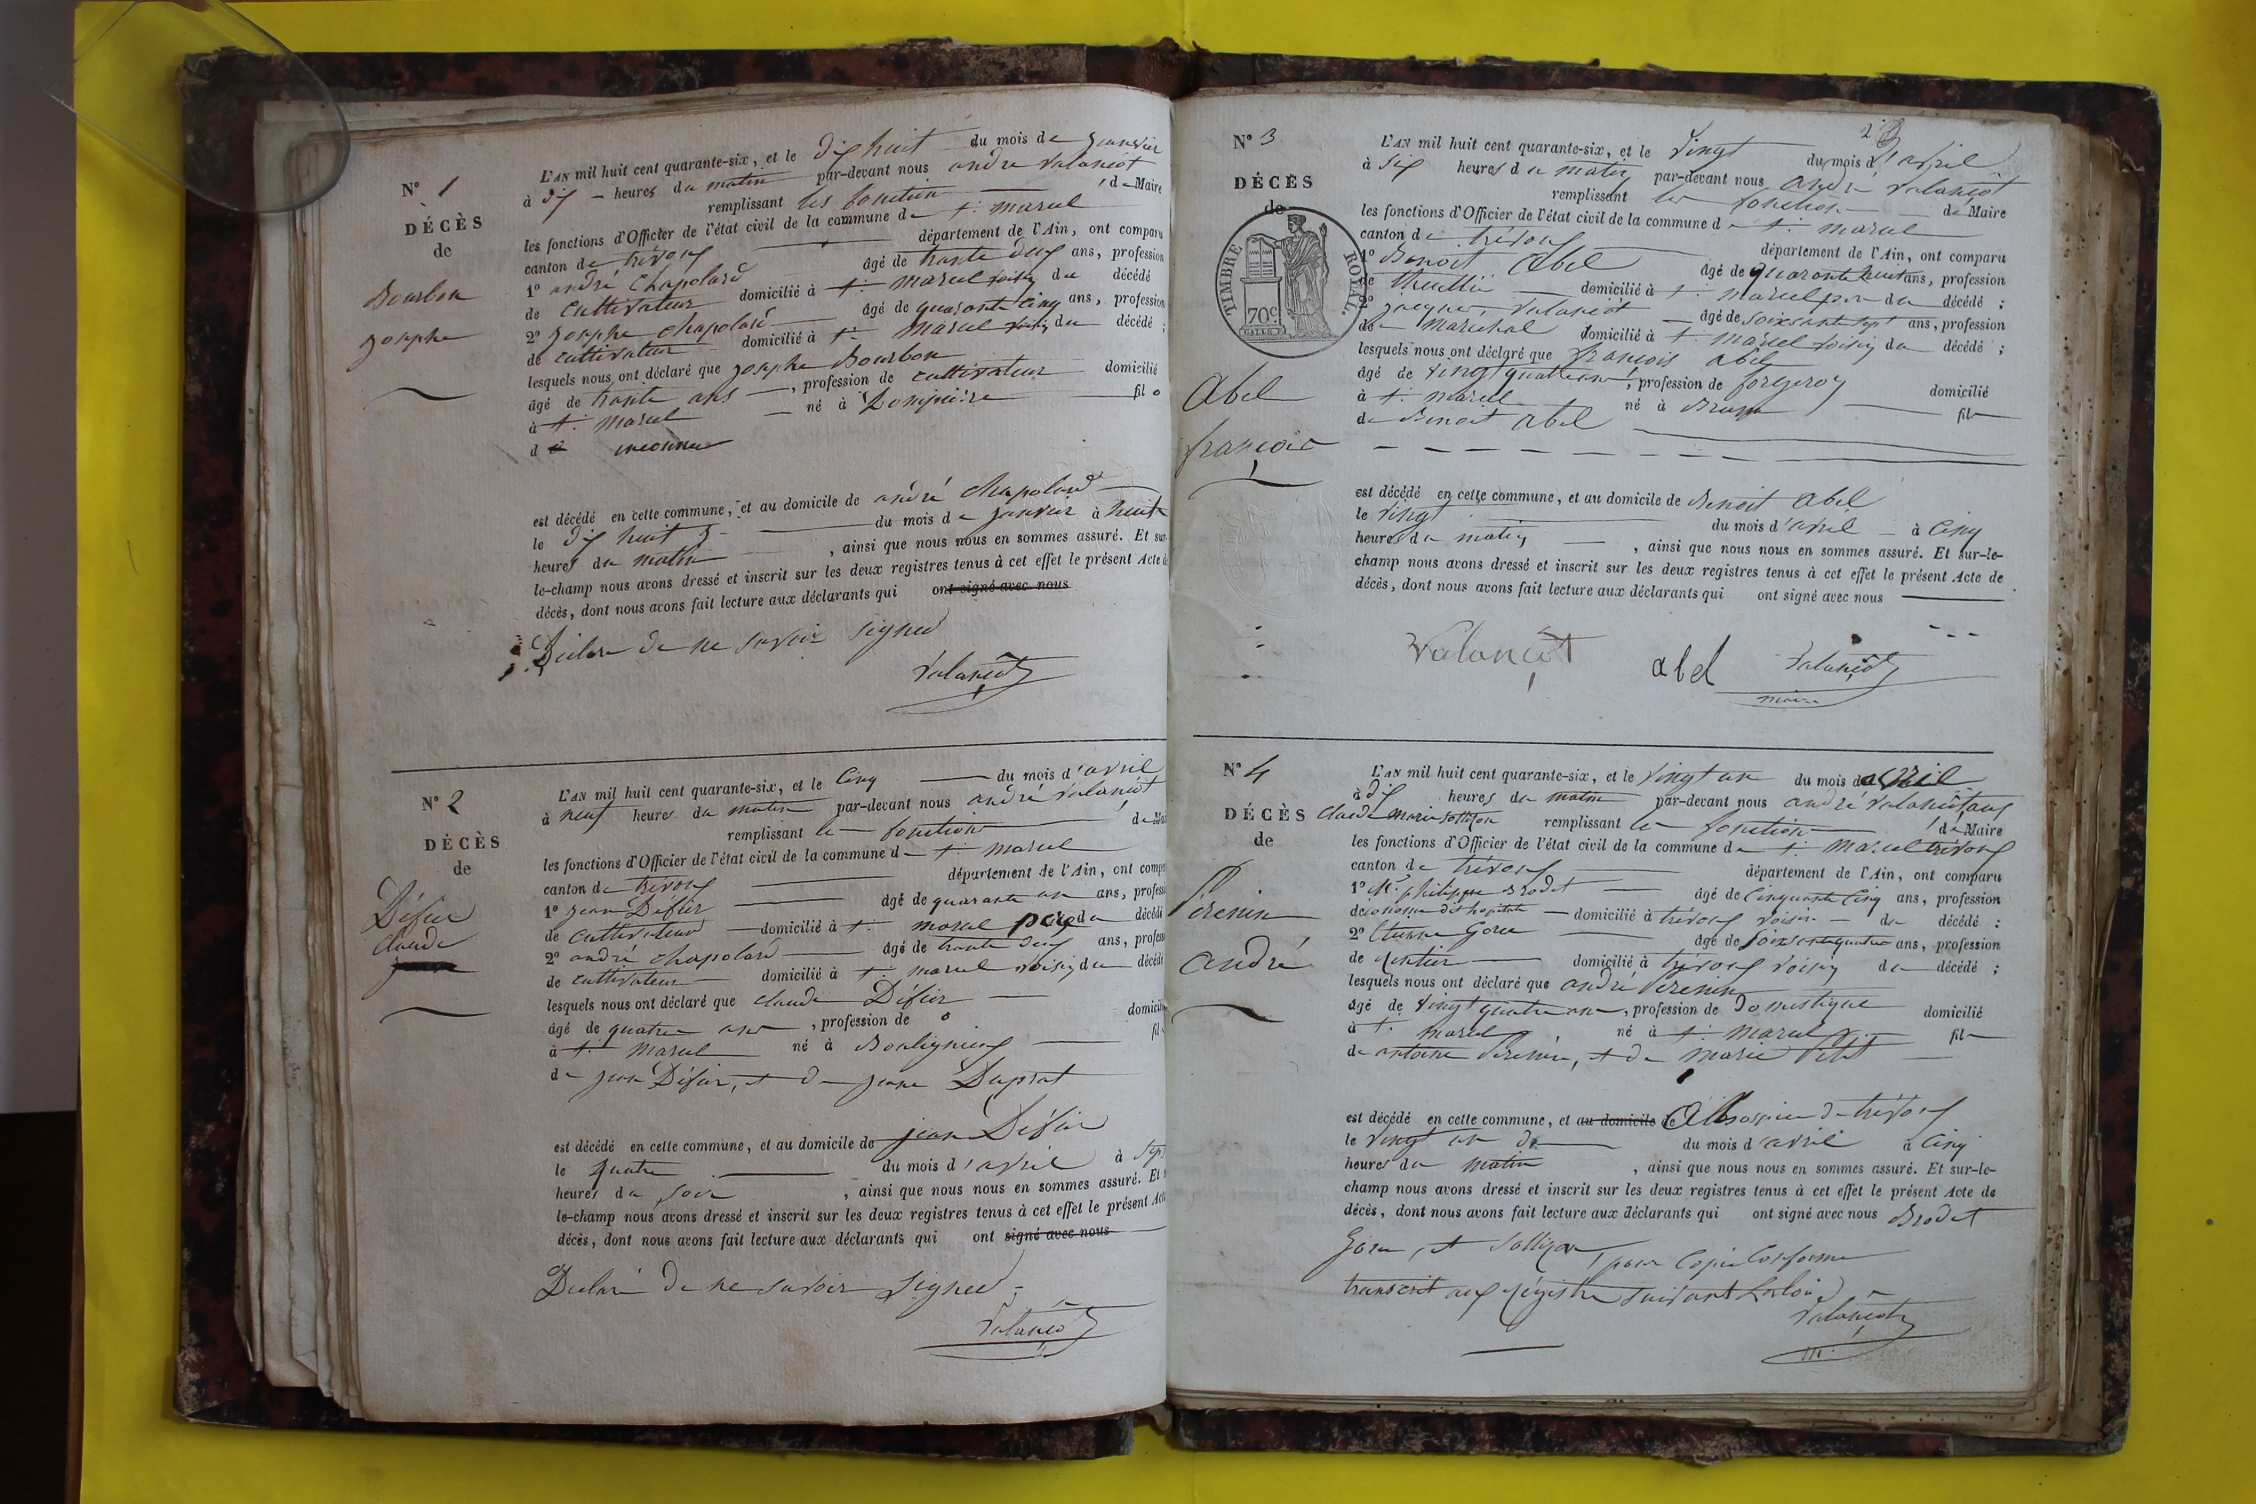 N° 1
DÉCÈS
de
Bourbon
josephe
L'AN mil huit cent quarante-six, et le dix huit du mois de janvier
à dix heures du matin par-devant nous andré valanciot
remplissant les fonction de Maire
les fonctions d'Officier de l'état civil de la commune de st. marcel
canton de trévoux département de l'Ain, ont comparu
1° andré Chapolard âgé de trante deux ans, profession
de cultivateur domicilié à st. marcel voisin du décédé
2° josephe chapolard âgé de quarante cinq ans, profession
de cultivateur domicilié à st. marcel voisin du décédé ;
lesquels nous ont déclaré que josephe Bourbon
âgé de trante ans, profession de cultivateur domicilié
à st. marcel né à Dompierre fil
d inconnu
est décédé en cette commune, et au domicile de andré chapolard
le dix huit du mois de janvier à huit
heures du matin, ainsi que nous nous en sommes assuré. Et sur-
le-champ nous avons dressé et inscrit sur les deux registres tenus à cet effet le présent Acte de
décès, dont nous avons fait lecture aux déclarants qui ont signé avec nous
Déclare de ne savoir signed
Valanciot
N° 2
DÉCÈS
de
Défier
claude
L'AN mil huit cent quarante-six, et le cinq du mois d'avril
à neuf heures du matin par-devant nous andré valanciot
remplissant le fonction de Mai
les fonctions d'Officier de l'état civil de la commune de st. marcel
canton de trévoux département de l'Ain, ont comp
1° jean Défier âgé de quarante un ans, professi
de cultivateur domicilié à st. marcel père du décédé
2° andré chapolard âgé de trante deux ans, profess
de cultivateur domicilié à st. marcel voisin du décédé
lesquels nous ont déclaré que claude Défier
âgé de quatre ans, profession de o domicilié
à st. marcel né à Bouligneux fil
de jean Défier, et de jeane Duprat
est décédé en cette commune, et au domicile de jean Défier
le quatre du mois d'avril à sept
heures du soir, ainsi que nous nous en sommes assuré. Et
le-champ nous avons dressé et inscrit sur les deux registres tenus à cet effet le présent Acte
décès, dont nous avons fait lecture aux déclarants qui ont signé avec nous
Declaré de ne savoir signed
Valanciot
2
N° 3
DÉCÈS
de
TIMBRE ROYAL.
70c
Abel
françois
L'AN mil huit cent quarante-six, et le vingt du mois d'avril
à six heures du matin par-devant nous andré valanciot
remplissant les fonction de Maire
les fonctions d'Officier de l'état civil de la commune de st. marcel
canton de trévoux département de l'Ain, ont comparu
1° Benoit Abel âgé de quarante huit ans, profession
de thuillié domicilié à st. marcel père du décédé ;
2° jacques valanciot âgé de soixsante sept ans, profession
de marechal domicilié à st. marcel voisin du décédé ;
lesquels nous ont déclaré que françois abel
âgé de vingt quatre ans, profession de forgeron domicilié
à st. marcel né à fil
de Benoit Abel
est décédé en cette commune, et au domicile de Benoit Abel
le vingt du mois d'avril à cinq
heures du matin, ainsi que nous nous en sommes assuré. Et sur-le-
champ nous avons dressé et inscrit sur les deux registres tenus à cet effet le présent Acte de
décès, dont nous avons fait lecture aux déclarants qui ont signé avec nous
Valanciot abel Valanciot
maire
N° 4
DÉCÈS
de
Perenin
andré
L'AN mil huit cent quarante-six, et le vingt un du mois d'avril
à dix heures du matin par-devant nous andré valanciot
claude marie remplissant le fonction de Maire
les fonctions d'Officier de l'état civil de la commune de st. marcel trévoux
canton de trévoux département de l'Ain, ont comparu
1° Mr. philippe Brodet âgé de cinquante cinq ans, profession
de domicilié à trévoux voisin du décédé :
2° Etienne Gorce âgé de soixsante quatre ans, profession
de Rentier domicilié à trévoux voisin du décédé ;
lesquels nous ont déclaré que andré Perenin
âgé de vingt quatre ans, profession de domestique domicilié
à st. marcel né à st. marcel fil
de antoine Perenin, et de marie Petit
est décédé en cette commune, et au domicile de A l'hospice de trévoux
le vingt un du mois d'avril à cinq
heures du matin, ainsi que nous nous en sommes assuré. Et sur-le-
champ nous avons dressé et inscrit sur les deux registres tenus à cet effet le présent Acte de
décès, dont nous avons fait lecture aux déclarants qui ont signé avec nous Brodet
Gorce, et pour copie conforme
transcrit aux régistre suivant la loi
Valanciot
m.